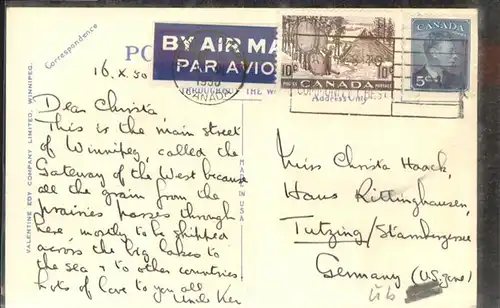 Correspondence
BY AIR MA
PAR AVIO
10¢ 10¢
CANADA
POSTES POSTAGE
CANADA
5
1950
CANADA
Address Only
16.X.50
Dear Christa,
This is the main street
of Winnipeg called the
Gateway of the West because
all the grain from the
prairies passes through
here, mostly to be shipped
across the big lakes to
the sea & to other countries
Lots of love to you all
Uncle Ken
VALENTINE EDY COMPANY LIMITED, WINNIPEG.
MADE IN U.S.A.
Miss Christa Haack,
Haus Rittinghausen,
Tutzing/Starnbergersee
Germany (U.S. Zone)